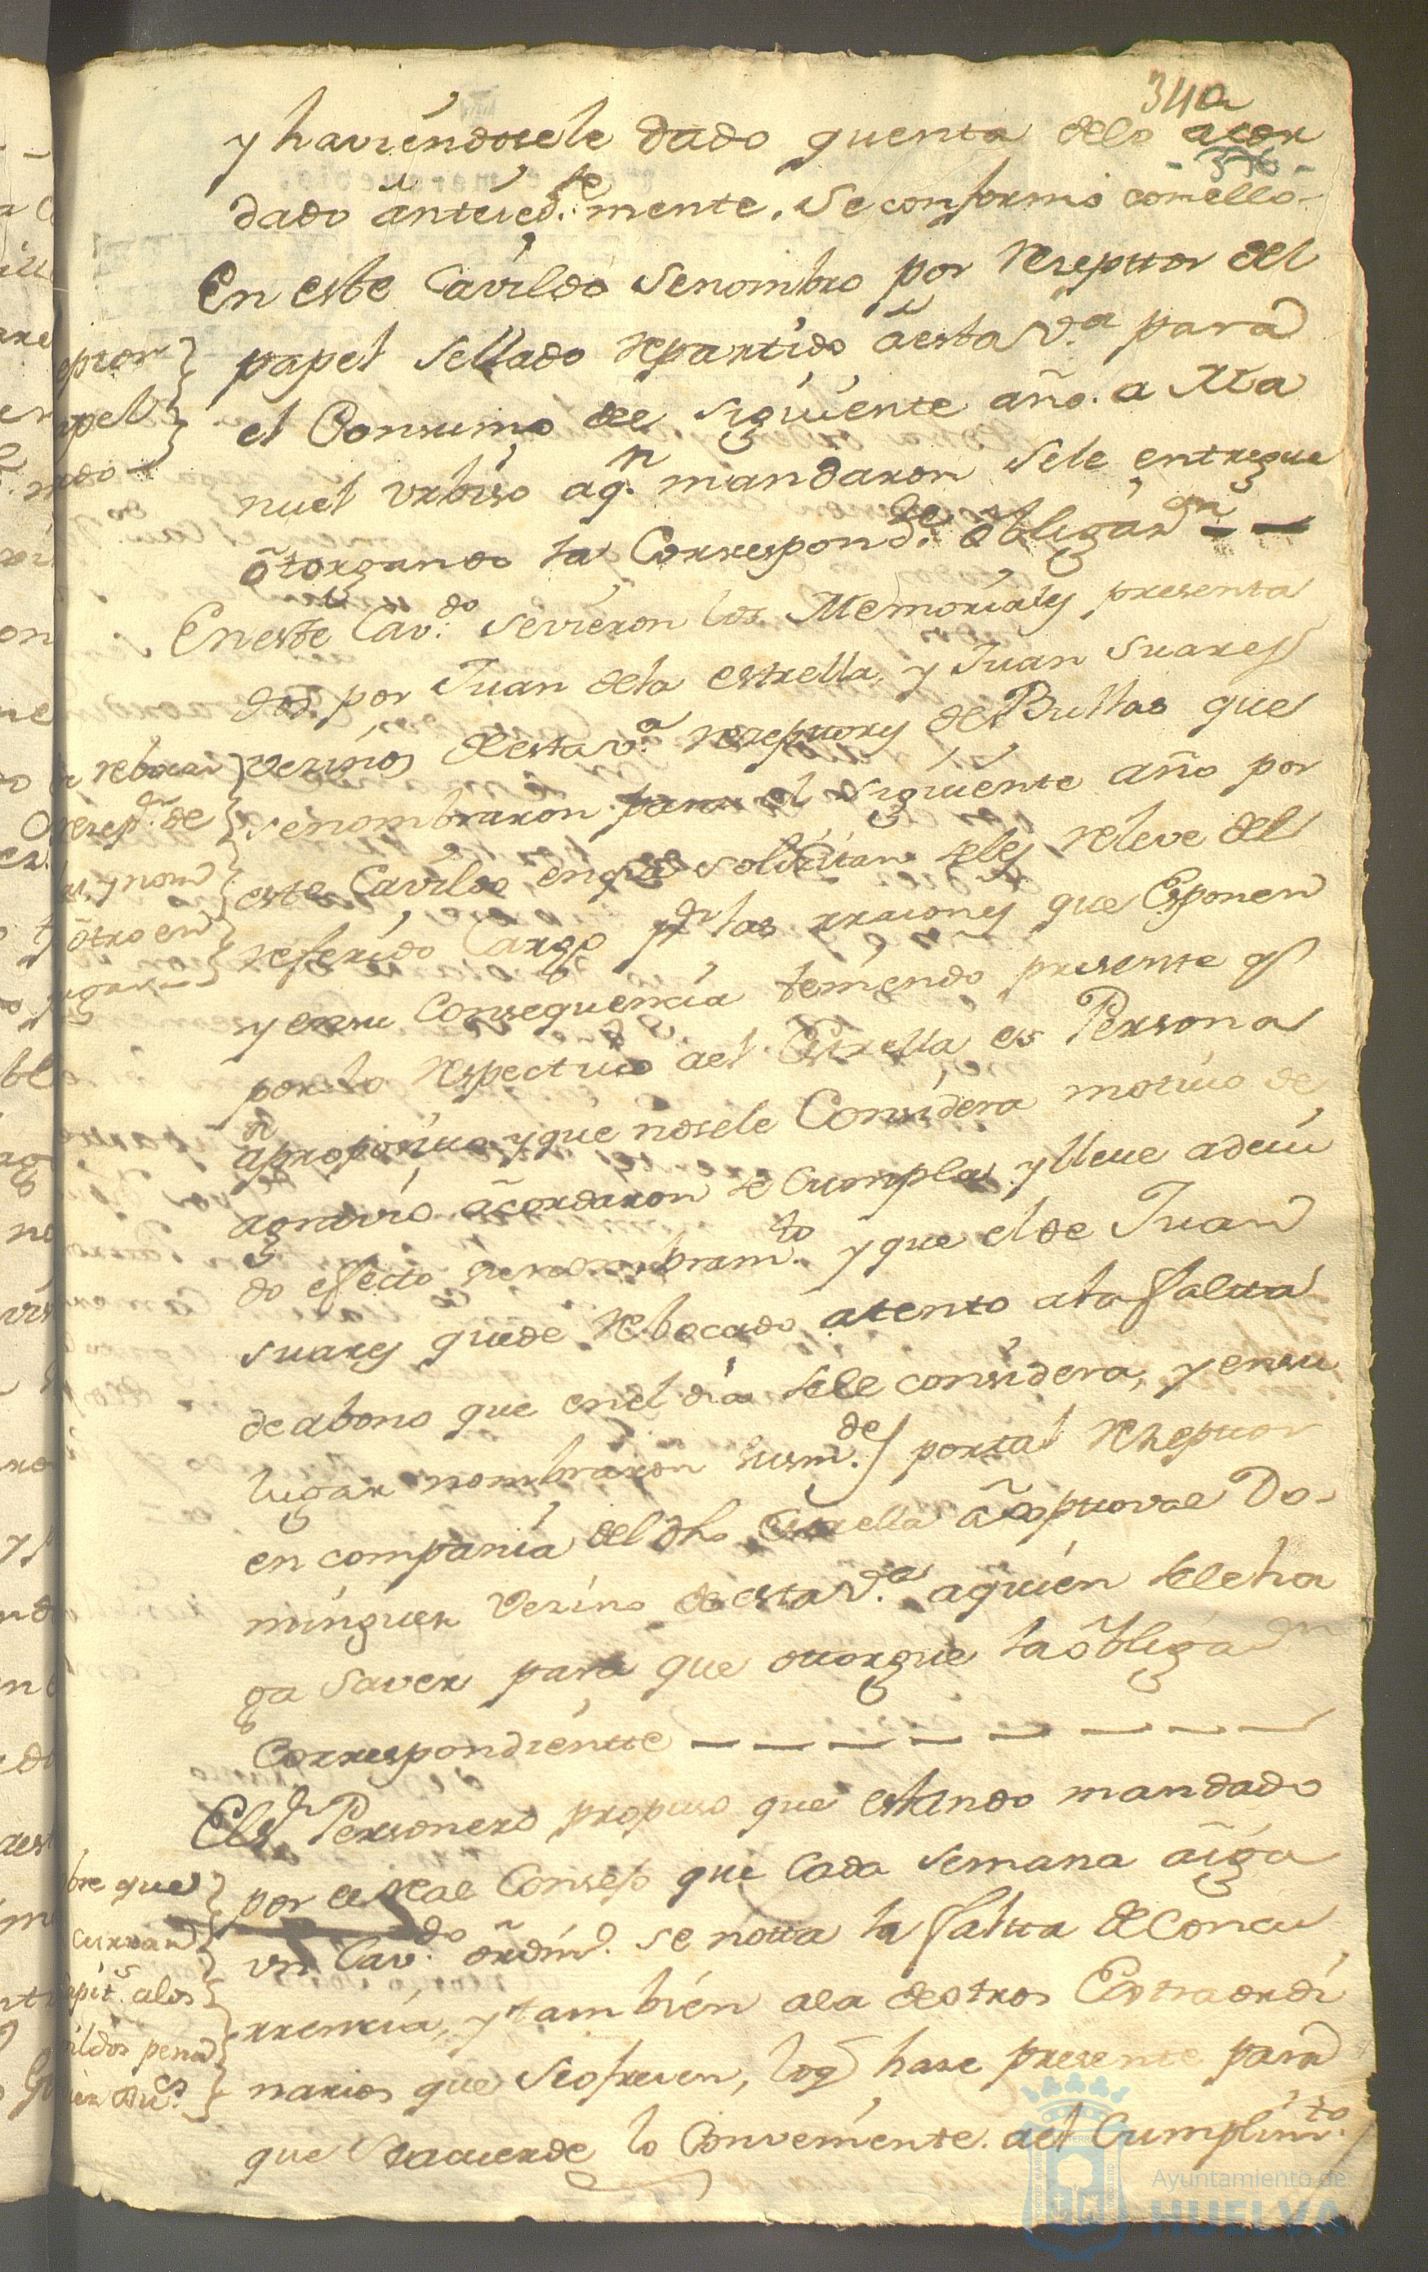 340
y haviendosele dado quenta delo acor
376
dado anteced.te mente. se conformó con ello-
En este Cavildo se nombro por reseptor del
papel sellado repartido á esta V.a para
el Consumo del siguiente año. a Ma
nuel Urbiso aq.n mandaron sele entregue
ótorgando la Correspond.te óbligaz.on
En este Cav.do sevieron los Memoriales presenta
dos por Juan dela estrella, y Juan Suares
vezinos de esta V.a reseptores de Bullas que
se nombraron para el siguiente año por
este Cavildo, en que solicitan seles releve del
referido Cargo p.r las rraiones que Esponen
y en su Consequencia teniendo presente q
por lo respectivo al Estrella es Persona
á proposito y que nosele Considera motivo de
agravio acordaron se Cumpla y lleve a devi
do efecto su nombram.to y que el de Juan
Suares quede rebocado atento a la faltta
de abono que en el dia sele considera, y en su
lugar nombraron sus m.des por tal reseptor
en compania del dho Estrella á Cristoval Do-
minguez Vezino de esta V.a a quien sele ha
ga saver para que ottorgue la óbligaz.on
Correspondientte
El S.r Personero propuso que estando mandado
por el Real Consejo que Cada semana aiga
un Cav.do ordin.o se notta la faltta de Concu
rrencia, y tambien a la de otros Extraordi
narios que se ofresen, loq hase presente para
que se acuerde lo Conveniente. al Cumplim.to
eptor
apel
rebocar
resep.or de
y nom
otro en
lugar
bre que
curran
apit.s alos
ildos pena
Ayuntamiento de
HUELVA